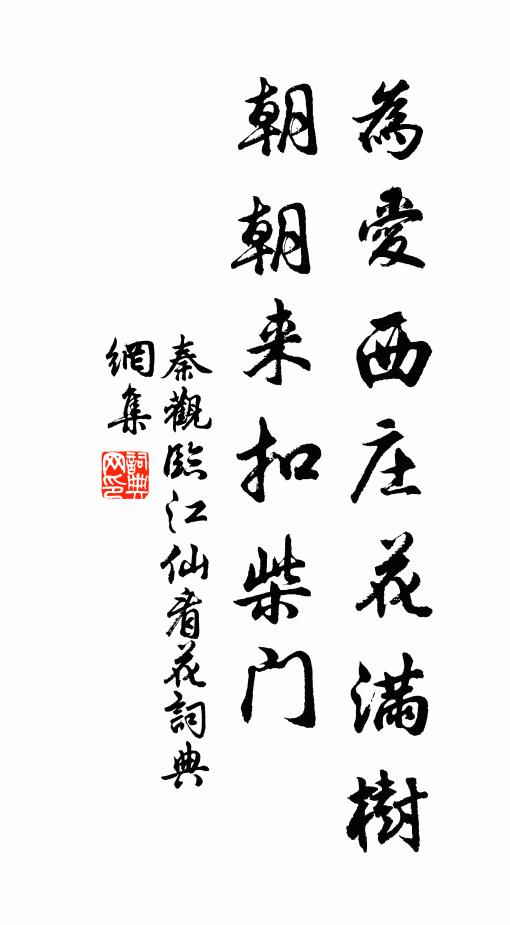 為愛西庄花滿樹
朝朝来扣柴门
秦觀臨江仙看花詞典
網集
詞典網印